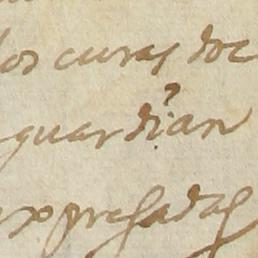 los curas doc
guardian
expresadas